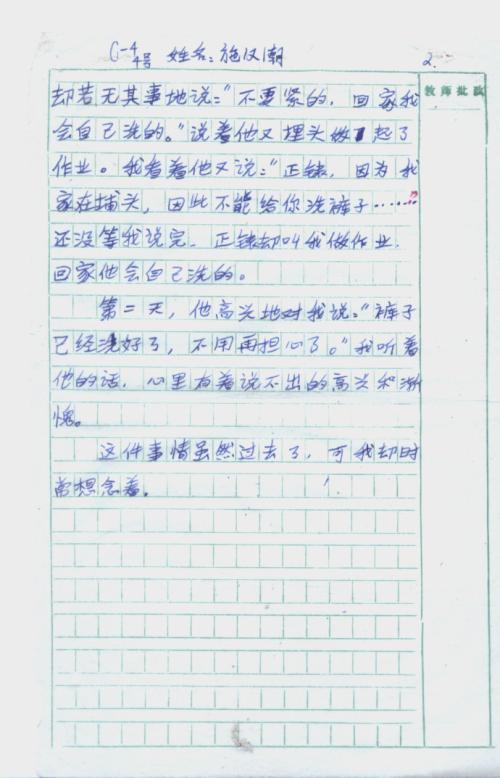 C-4 4号 姓名：施汉潮 2.
教师批改
却若无其事地说："不要紧的，回家我
会自己洗的。"说着他又埋头做起了
作业。我看着他又说："正铁，因为我
家在埔头，因此不能给你洗裤子……"
还没等我说完，正铁却叫我做作业，
回家他会自己洗的。
第二天，他高兴地对我说："裤子
已经洗好了，不用再担心了。"我听着
他的话，心里有着说不出的高兴和渐
愧。
这件事情虽然过去了，可我却时
常想念着。